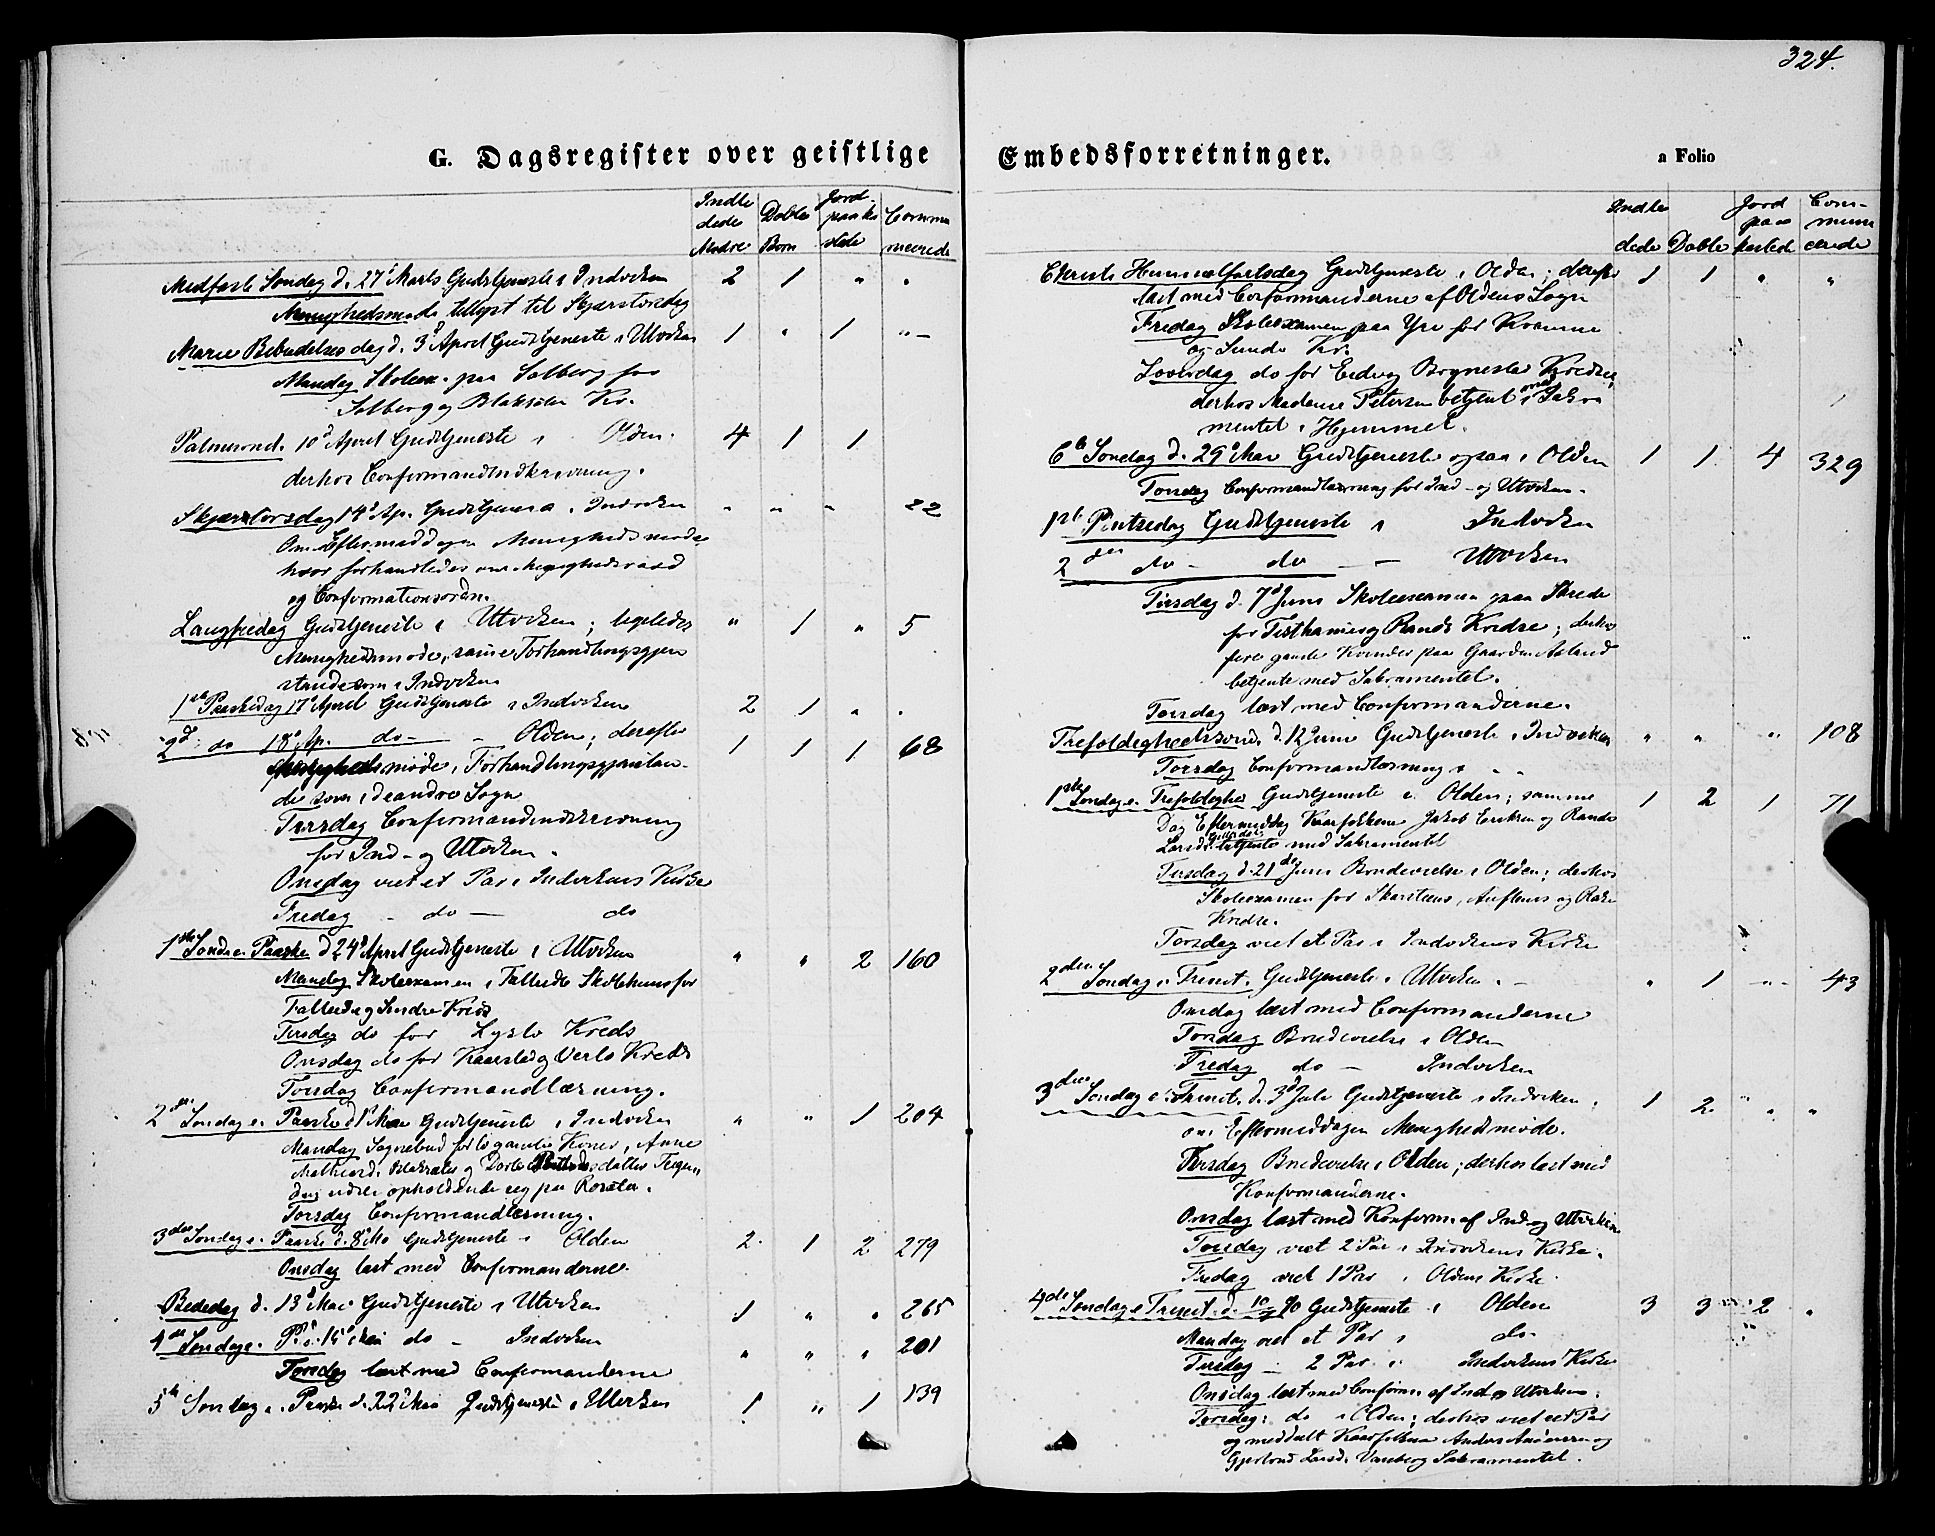 324.
G. Dagsregister over geistlige
Indle dede Mødre | Døbte Børn | Jord paaka stede | Commu nicerede
Midfaste Søndag d. 27 Marts Gudstjeneste i Indviken 2 1 " "
Menighedsmøde tillyst til Skjærtorsdag
Marie Bebudelses dag d. 3 April Gudstjeneste i Utviken 1 " 1 " –
Mandag Skoleex. paa Solberg for
Solberg og Blaksæter Kr.
Palmesønd. 10 April Gudstjeneste i Olden. 4 1 1
derhos Confirmandindskrivning.
Skjærtorsdag 14 Ap. Gudstjeneste i Indviken " " " 22
Om Eftermiddagen Menighedsmøde
hvor forhandledes om Menighedsraad
og Confirmationsordn.
Langfredag Gudstjeneste i Utviken; ligeledes " 1 " 5
Menighedsmøde, samme Forhandlingsgjen
stande som i Indviken
1ste Paaskedag 17 April Gudstjeneste i Indviken 2 1 " "
2d do 18 Ap. do – Olden; derefter 1 1 1 68
Menighedsmøde, Forhandlingsgjenstan-
de som i de andre Sogn
Tirsdag Confirmandindskrivning
for Ind- og Utviken.
Onsdag viet et Par i Indvikens Kirke
Fredag – do – do
1ste Sønd. e. Paaske d. 24 April Gudstjeneste i Utviken " " 2 160
Mandag Skoleexamen i Skolehuus for
og Søndre Kreds
Tirsdag do for Kreds
Onsdag do for og Kreds
Torsdag Confirmandlæsning.
2den Søndag e. Paaske d. 1 Mai Gudstjeneste i Indviken " " 1 204
Mandag Sognebud for to gamle Koner, Anne
og Dorte datter
opholdende sig paa
Torsdag Confirmandlæsning.
3die Søndag e. Paaske d. 8 Mai Gudstjeneste i Olden 2 1 2 279
Onsdag læst med Confirmanderne.
Bededag d. 13 Mai Gudstjeneste i Utviken 1 " " 265
4de Søndag e. P. d. 15 Mai do – Indviken " " " 201
Torsdag læst med Confirmanderne
5te Søndag e. Paaske d. 22 Mai Gudstjeneste i Utviken 1 " 1 139
Embedsforretninger.
a Folio
Indle dede | Døbte | Jord paa kastede | Com- muni cerede
Christi Himmelfartsdag Gudstjeneste i Olden; derefter 1 1 " "
læst med Confirmanderne af Oldens Sogn
Fredag Skoleexamen paa Yri for
og Sunde Kr.
Løverdag do for Eide og Brynestad Kredse;
derhos Madame Petersen betjent med Sakra 1
mentet i Hjemmet.
6te Søndag d. 29 Mai Gudstjeneste ogsaa i Olden 1 1 4 329
Torsdag Confirmandlæsning for Ind- og Utviken.
1ste Pintsedag Gudstjeneste i Indviken
2den do – do – – Utviken
Tirsdag d. 7 Juni Skoleexamen paa Skrede
for Tisthamer og Rands Kredse; derhos
fire gamle Kvinder paa Gaarden Aaland
betjente med Sakramentet.
Torsdag læst med Confirmanderne.
Trefoldighedssønd. d. 12 Juni Gudstjeneste i Indviken " " " 108
Torsdag Confirmandlæsning
1ste Søndag e. Trefoldighed Gudstjeneste i Olden; samme 1 2 1 71
Dag Eftermiddag Kaarfolkene Jakob Eriksen og Rande
Larsd. betjente med Sakramentet
Tirsdag d. 21de Juni Brudevielse i Olden; derhos
Skoleexamen for Skarstens, Auflems og
Kredse.
Torsdag viet et Par i Indvikens Kirke
2den Søndag e. Trinit. Gudstjeneste i Utviken. – " 1 " 43
Onsdag læst med Confirmanderne
Torsdag Brudevielse i Olden
Fredag do – Indviken
3die Søndag e. Trinit. d. 3 Juli Gudstjeneste i Indviken, 1 2 " " "
om Eftermiddagen Menighedsmøde.
Tirsdag Brudevielse i Olden; derhos læst med
Konfirmanderne.
Onsdag læst med Konfirm. af Ind og Utviken
Torsdag viet 2 Par i Indvikens Kirke.
Fredag viet 1 Par i Oldens Kirke.
4de Søndag e. Trinit. d. 10/7 70 Gudstjeneste i Olden 3 3 2 "
Mandag viet et Par i do.
Tirsdag – 2 Par i Indvikens Kirke
Onsdag læst med Confirm. af Ind og Utviken.
Torsdag: do i Olden; derhos viet et Par
og meddelt Kaarfolkene Anders og
Larsd. Sakramentet.